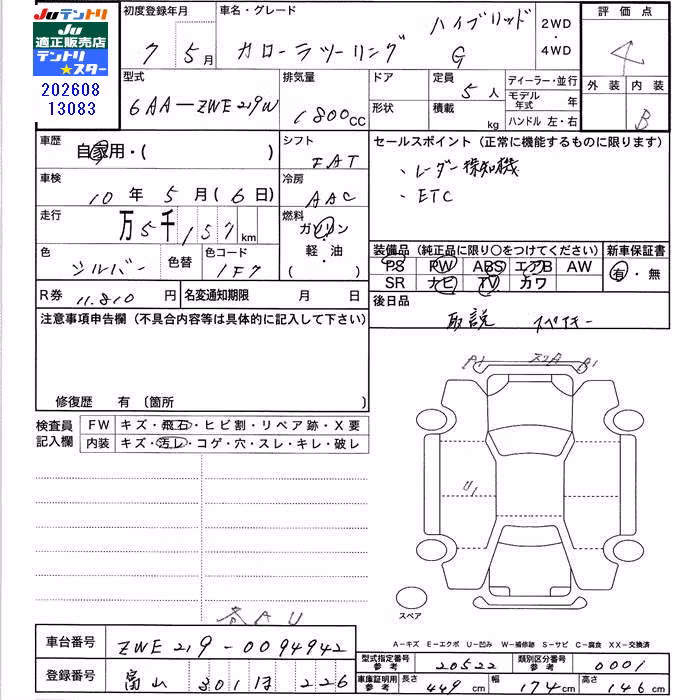 Juテントリ
Ju
適正販売店
テントリ
★スター
202608
13083
初度登録年月
7 5月
車名・グレード
カローラツーリング ハイブリッド G
2WD
・
4WD
評価点
4
外装 内装
B
型式
6AA-ZWE219W
排気量
1800cc
ドア
形状
定員
5人
積載
kg
ディーラー・並行
モデル年式 年
ハンドル 左・右
車歴
自家用・( )
シフト
FAT
セールスポイント（正常に機能するものに限ります）
・レーダー探知機
・ETC
車検
10年 5月(6日)
冷房
AAC
走行
万5千157km
燃料
ガソリン
軽・油
( )
色
シルバー
色替
色コード
1F7
装備品（純正品に限り〇をつけてください）
PS PW ABS エアB AW
SR ナビ TV カワ
新車保証書
有・無
R券 11.810円
名変通知期限 月 日
後日品
取説 スペアキー
注意事項申告欄（不具合内容等は具体的に記入して下さい）
修復歴 有 〔箇所 〕
検査員
記入欄
FW キズ・飛石・ヒビ割・リペア跡・X要
内装 キズ・汚レ・コゲ・穴・スレ・キレ・破レ
P1 スリA B1
U1
スペア
各AU
A-キズ E-エクボ U-凹み W-補修跡 S-サビ C-腐食 XX-交換済
車台番号
ZWE219-0094942
登録番号
富山 301 ほ 226
型式指定番号
参考
20522
類別区分番号
参考
0001
車庫証明用
参考
長さ 449cm 幅 174cm 高さ 146cm